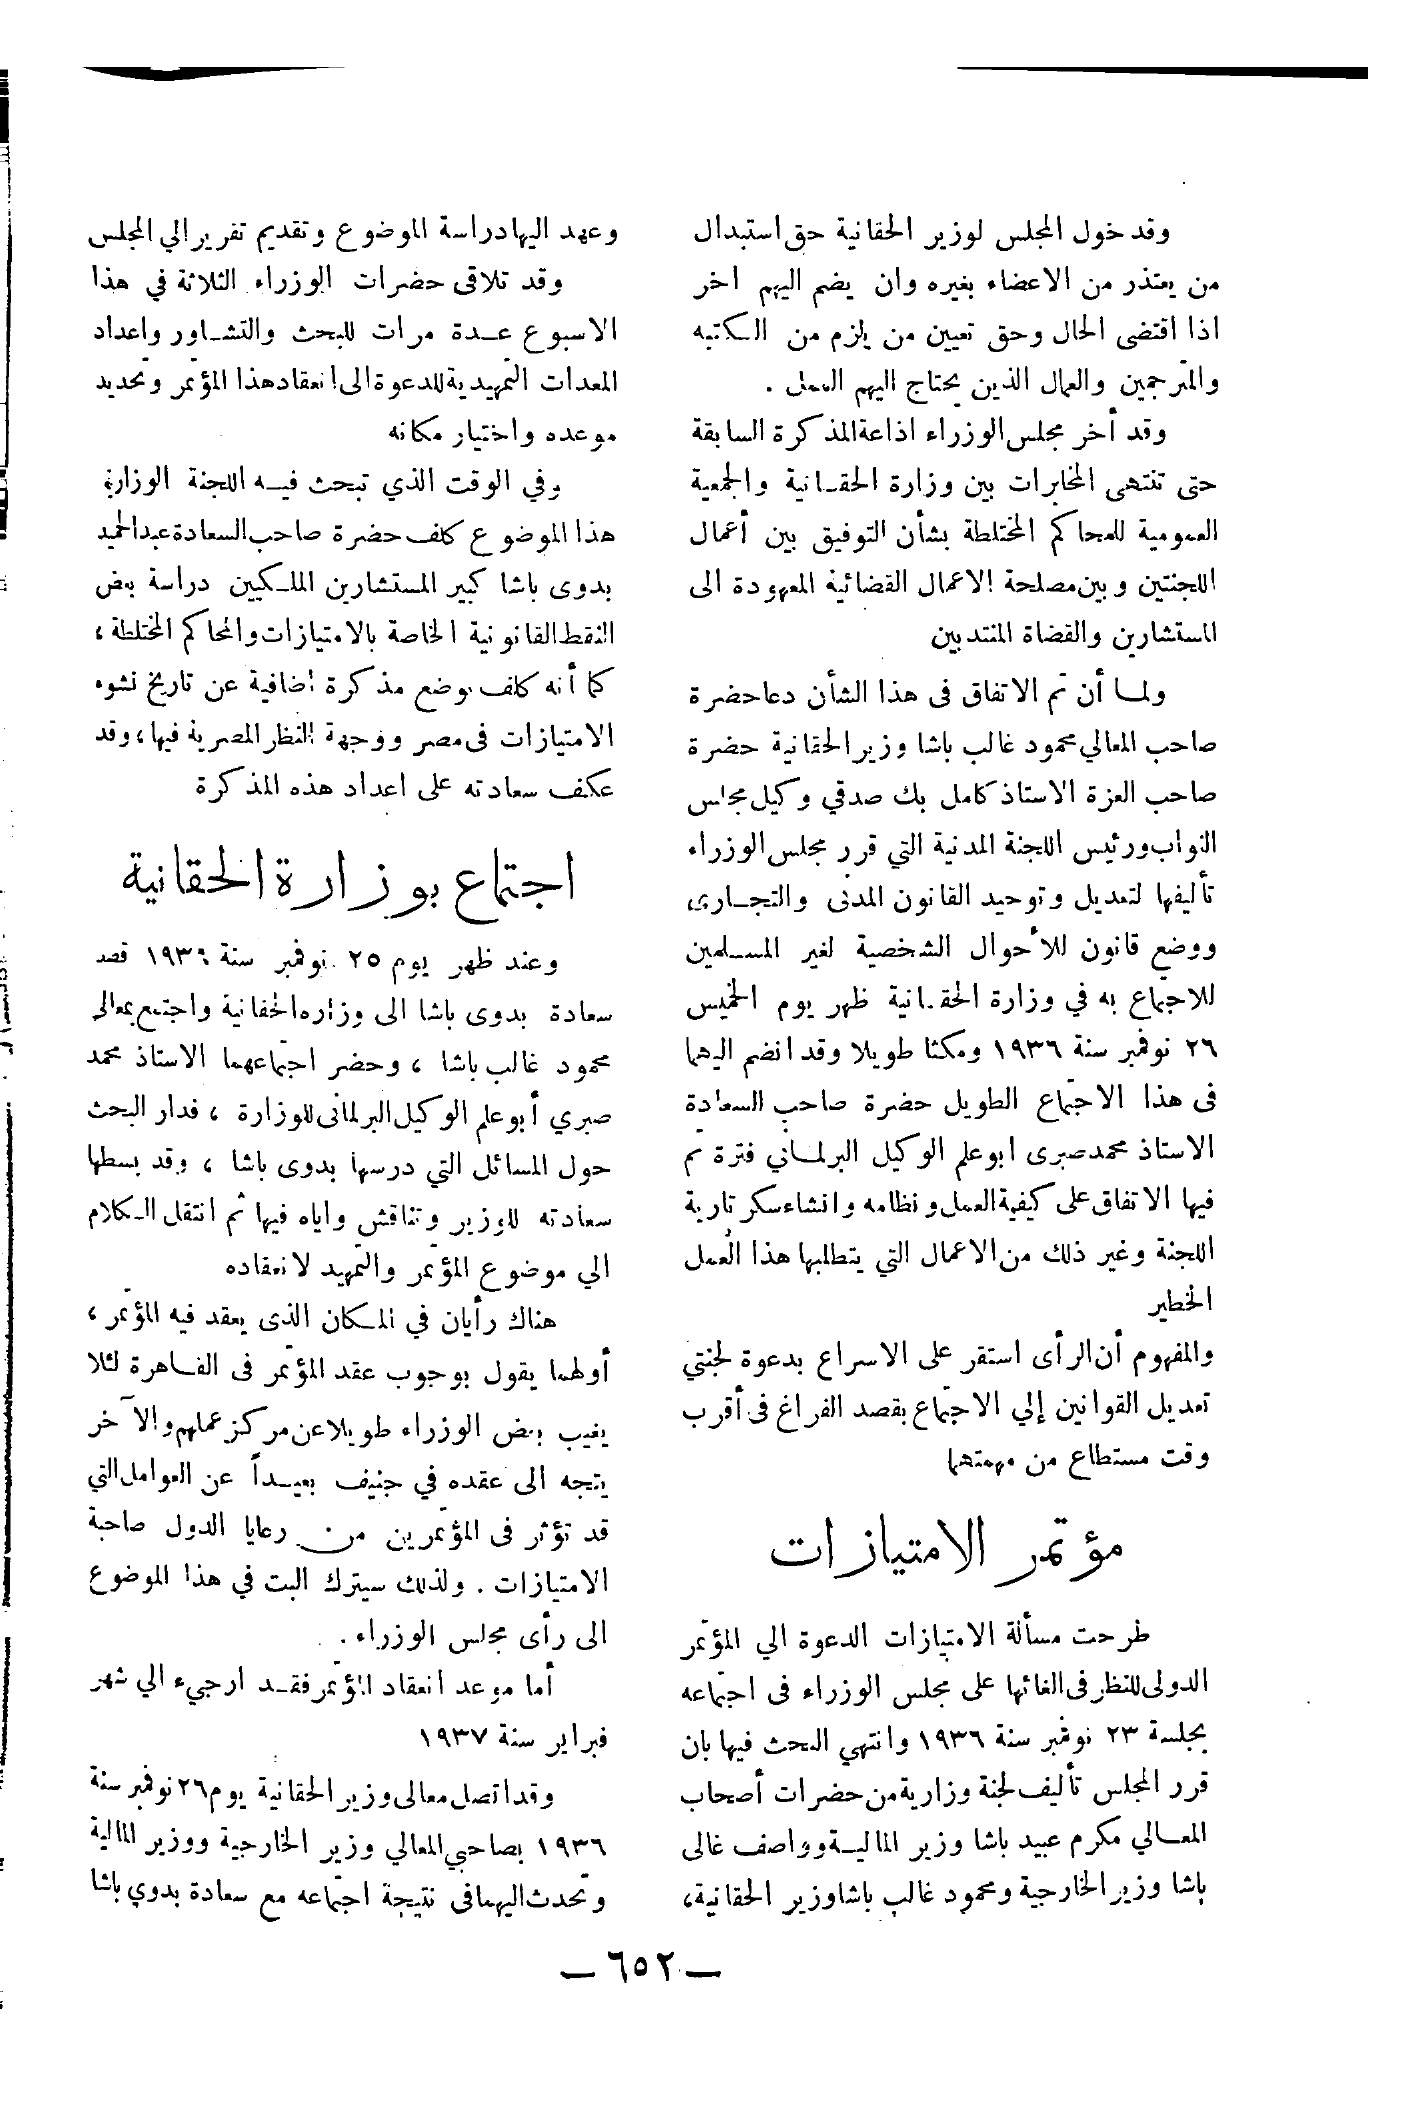 وقد خول المجلس لوزير الحقانية حق استبدال
من يعتذر من الاعضاء بغيره وان يضم اليهم اخر
اذا اقتضى الحال وحق تعيين من يلزم من الكتبه
والمترجمين والعمال الذين يحتاج اليهم العمل .
وقد أخر مجلس الوزراء اذاعة المذكرة السابقة
حتى تنتهى المخابرات بين وزارة الحقانية والجمعية
العمومية للمحاكم المختلطة بشأن التوفيق بين أعمال
اللجنتين وبين مصلحة الاعمال القضائية المعهودة الى
المستشارين والقضاة المنتدبين
ولما أن تم الاتفاق فى هذا الشأن دعا حضرة
صاحب المعالي محمود غالب باشا وزير الحقانية حضرة
صاحب العزة الاستاذ كامل بك صدقي وكيل مجلس
النواب ورئيس اللجنة المدنية التي قرر مجلس الوزراء
تأليفها لتعديل وتوحيد القانون المدنى والتجارى
ووضع قانون للأحوال الشخصية لغير المسلمين
للاجتماع به في وزارة الحقانية ظهر يوم الخميس
٢٦ نوفمبر سنة ١٩٣٦ ومكثا طويلا وقد انضم اليهما
فى هذا الاجتماع الطويل حضرة صاحب السعادة
الاستاذ محمد صبرى ابو علم الوكيل البرلماني فترة تم
فيها الاتفاق على كيفية العمل ونظامه وانشاء سكرتارية
اللجنة وغير ذلك من الاعمال التي يتطلبها هذا العمل
الخطير
والمفهوم أن الرأى استقر على الاسراع بدعوة لجنتي
تعديل القوانين إلي الاجتماع بقصد الفراغ فى أقرب
وقت مستطاع من مهمتهما
مؤتمر الامتيازات
طرحت مسألة الامتيازات الدعوة الي المؤتمر
الدولى للنظر فى الغائها على مجلس الوزراء فى اجتماعه
بجلسة ٢٣ نوفمبر سنة ١٩٣٦ وانتهي البحث فيها بان
قرر المجلس تأليف لجنة وزارية من حضرات أصحاب
المعالي مكرم عبيد باشا وزير المالية وواصف غالى
باشا وزير الخارجية ومحمود غالب باشا وزير الحقانية،
وعهد اليها دراسة الموضوع وتقديم تقرير الي المجلس
وقد تلاقى حضرات الوزراء الثلاثة في هذا
الاسبوع عدة مرات للبحث والتشاور واعداد
المعدات التمهيدية للدعوة الى انعقاد هذا المؤتمر وتحديد
موعده واختيار مكانه
وفي الوقت الذي تبحث فيه اللجنة الوزارية
هذا الموضوع كلف حضرة صاحب السعادة عبد الحميد
بدوى باشا كبير المستشارين الملكيين دراسة بعض
النقط القانونية الخاصة بالامتيازات والمحاكم المختلطة ،
كما أنه كلف بوضع مذكرة اضافية عن تاريخ نشوء
الامتيازات فى مصر ووجهة النظر المصرية فيها ، وقد
عكف سعادته على اعداد هذه المذكرة
اجتماع بوزارة الحقانية
وعند ظهر يوم ٢٥ نوفمبر سنة ١٩٣٦ قصد
سعادة بدوى باشا الى وزاره الحقانية واجتمع بمعالى
محمود غالب باشا ، وحضر اجتماعهما الاستاذ محمد
صبري أبو علم الوكيل البرلمانى للوزارة ، فدار البحث
حول المسائل التي درسها بدوى باشا ، وقد بسطها
سعادته للوزير وتناقش واياه فيها ثم انتقل الكلام
الي موضوع المؤتمر والتمهيد لانعقاده
هناك رأيان في المكان الذى يعقد فيه المؤتمر ،
أولهما يقول بوجوب عقد المؤتمر فى القاهرة لئلا
يغيب بعض الوزراء طويلا عن مركز عملهم والآخر
يتجه الى عقده في جنيف بعيداً عن العوامل التي
قد تؤثر فى المؤتمرين من رعايا الدول صاحبة
الامتيازات . ولذلك سيترك البت في هذا الموضوع
الى رأى مجلس الوزراء .
أما موعد انعقاد المؤتمر فقد ارجيء الي شهر
فبراير سنة ١٩٣٧
وقد اتصل معالى وزير الحقانية يوم ٢٦ نوفمبر سنة
١٩٣٦ بصاحبي المعالي وزير الخارجية ووزير المالية
وتحدث اليهما فى نتيجة اجتماعه مع سعادة بدوي باشا
— ٦٥٢ —